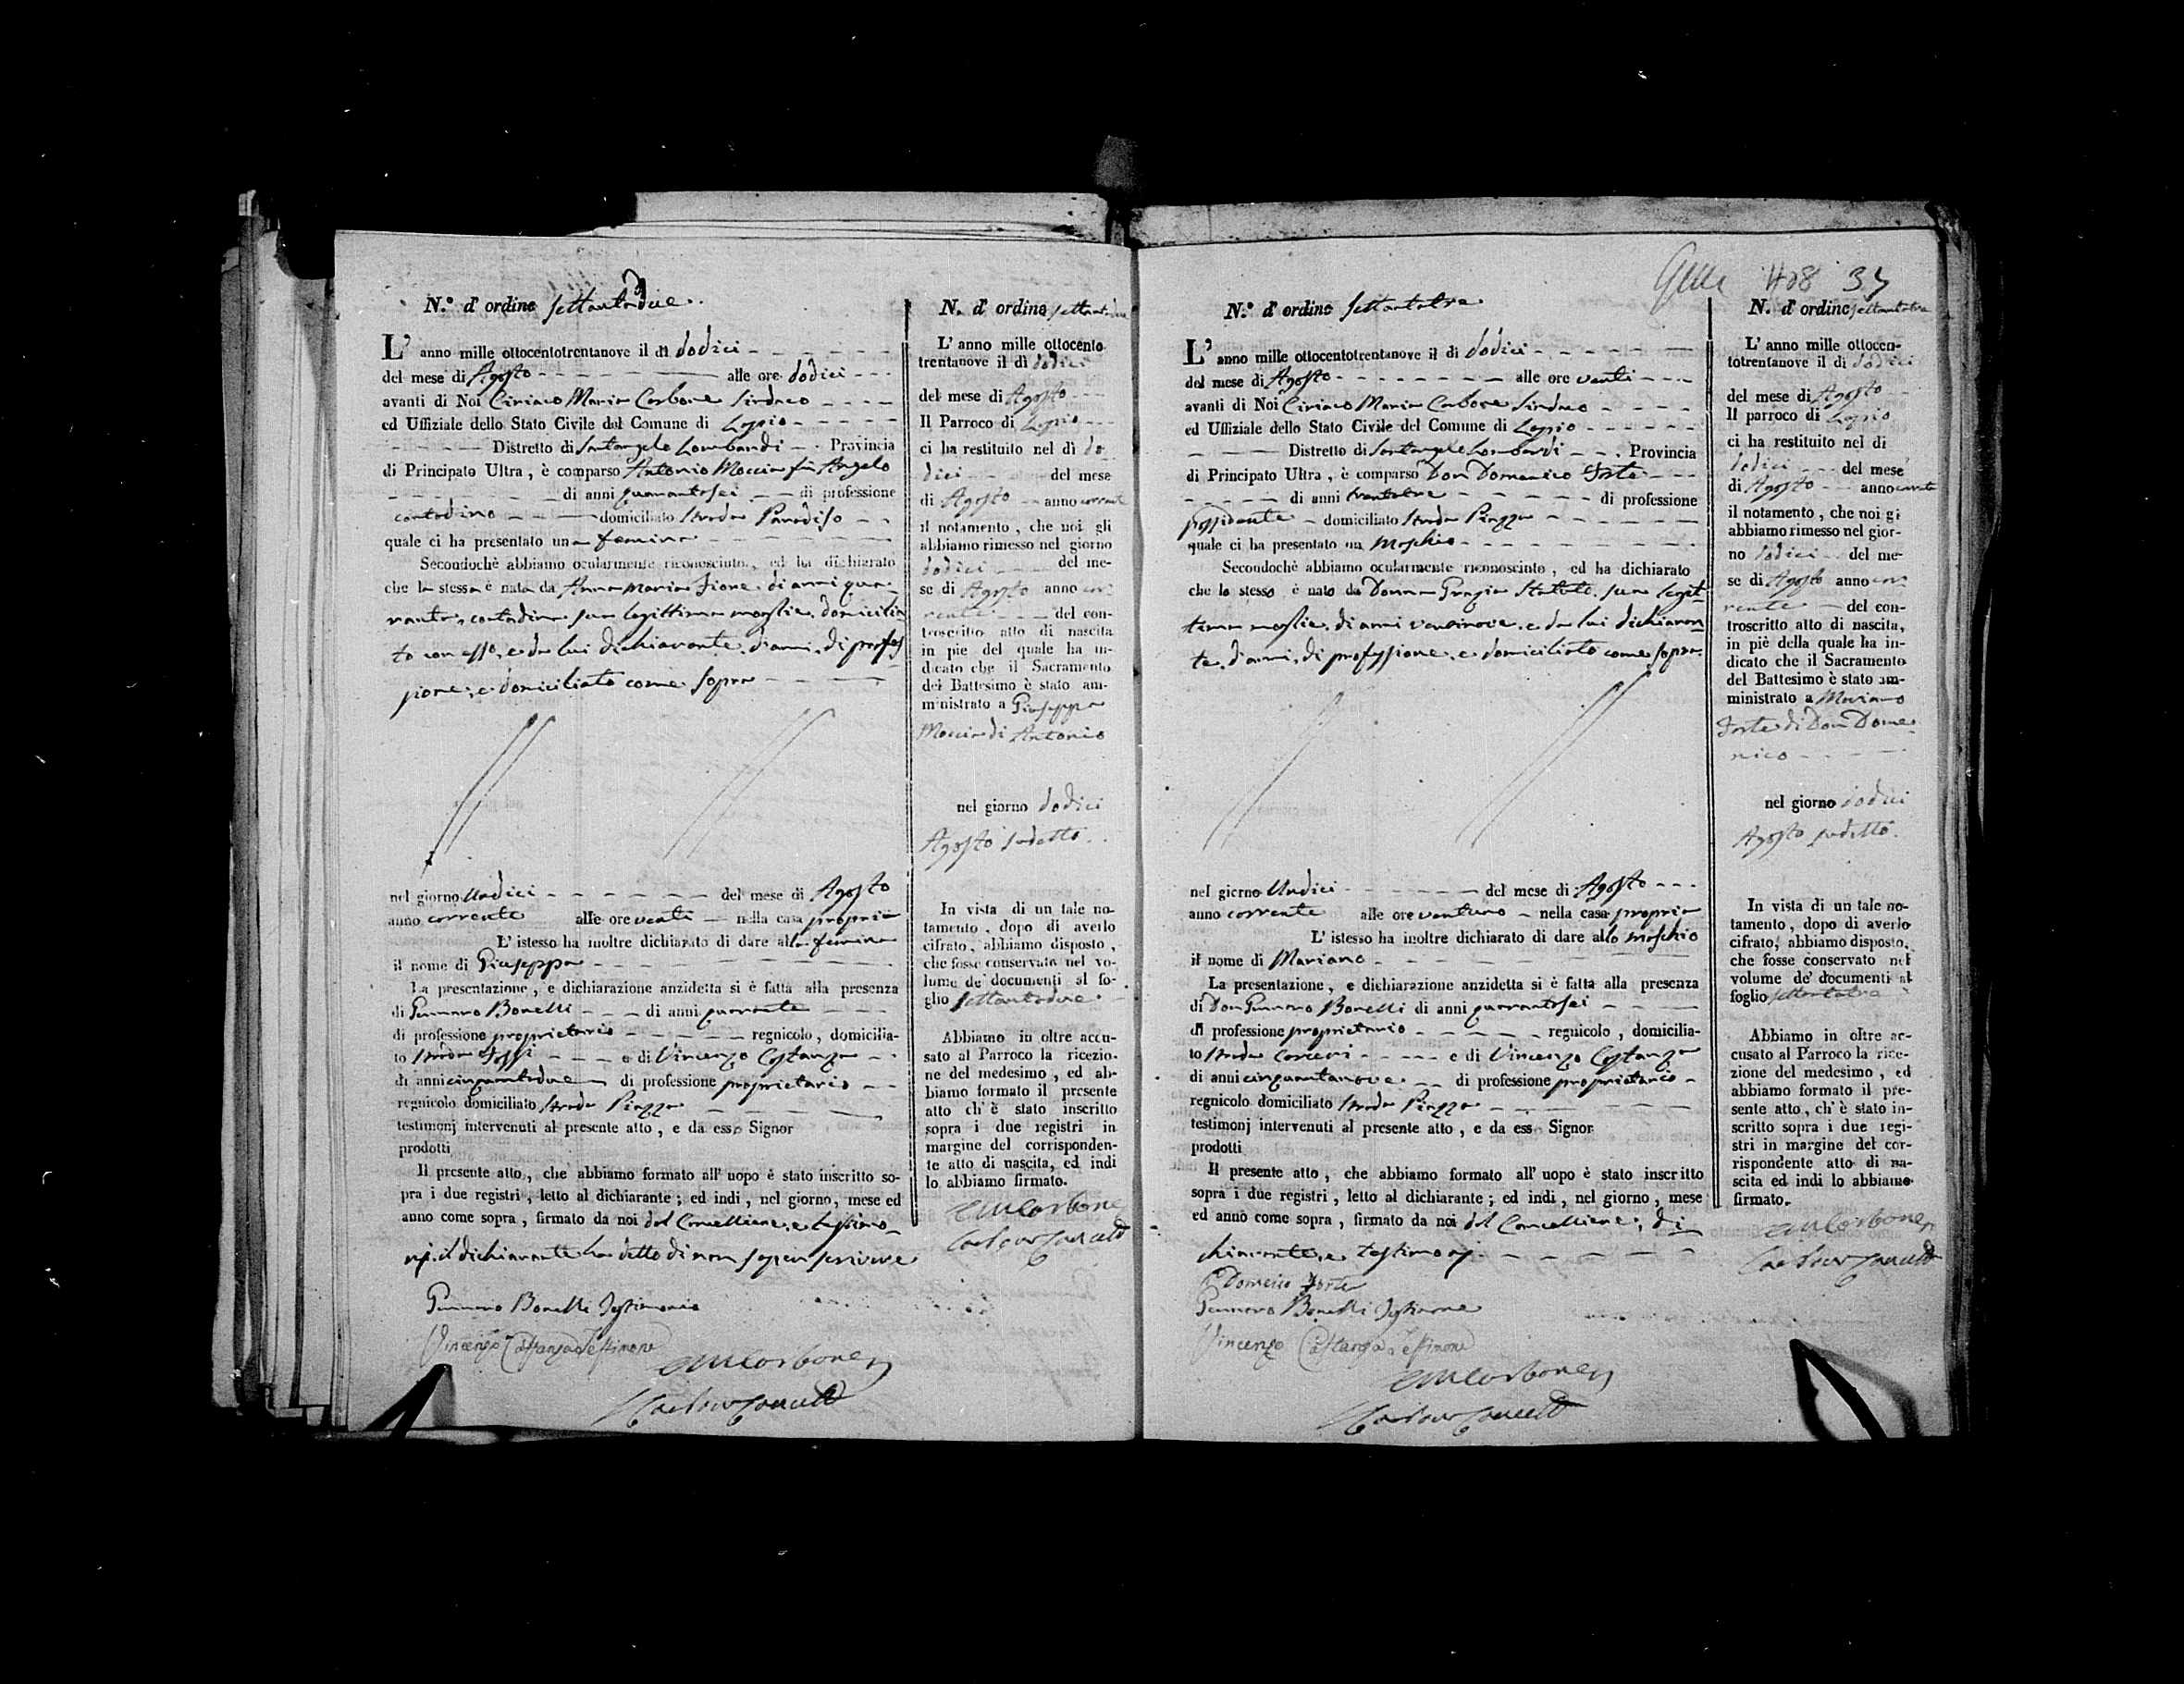 N.º d' ordine Settantadue
L' anno mille ottocentotrentanove il dì dodici
del mese di Agosto alle ore dodici
avanti di Noi Ciriaco Maria Carbone Sindaco
ed Uffiziale dello Stato Civile del Comune di Lapio
Distretto di Santangelo Lombardi Provincia
di Principato Ultra, è comparso Antonio Moccia fu Angelo
di anni quarantasei di professione
contadino domiciliato Strada Paradiso
quale ci ha presentato una femina
Secondochè abbiamo ocularmente riconosciuto, ed ha dichiarato
che la stessa è nata da Anna Maria Fiore di anni qua-
ranta, contadina sua legittima moglie domicilia
ta con esso, e da lui dichiarante d'anni, di profes
sione, e domiciliato come sopra
nel giorno Undici del mese di Agosto
anno corrente alle ore venti nella casa propria
L' istesso ha inoltre dichiarato di dare alla femina
il nome di Giuseppa
La presentazione, e dichiarazione anzidetta si è fatta alla presenza
di Gennaro Bonelli di anni quaranta
di professione proprietario regnicolo, domicilia-
to Strada Fossi e di Vincenzo Costanza
di anni cinquantadue di professione proprietario
regnicolo domiciliato Strada Piazza
testimonj intervenuti al presente atto, e da esso Signor
prodotti
Il presente atto, che abbiamo formato all' uopo è stato inscritto so-
pra i due registri, letto al dichiarante; ed indi, nel giorno, mese ed
anno come sopra, firmato da noi dal Cancelliere, e testimo-
nj. il dichiarante ha detto di non saper scrivere
Gennaro Bonelli Testimonio
Vincenzo Costanza Testimone
CMCarbone
N. d' ordine settantadue
L' anno mille ottocento
trentanove il dì dodici
del mese di Agosto
Il Parroco di Lapio
ci ha restituito nel dì do
dici del mese
di Agosto anno corrente
il notamento, che noi gli
abbiamo rimesso nel giorno
dodici del me-
se di Agosto anno cor
rente del con-
troscritto atto di nascita
in piè del quale ha in-
dicato che il Sacramento
del Battesimo è stato am-
ministrato a Giuseppa
Moccia di Antonio
nel giorno dodici
Agosto sudetto
In vista di un tale no-
tamento, dopo di averlo
cifrato, abbiamo disposto,
che fosse conservato nel vo-
lume de' documenti al fo-
glio settantadue
Abbiamo in oltre accu-
sato al Parroco la ricezio-
ne del medesimo, ed ab-
biamo formato il presente
atto ch' è stato inscritto
sopra i due registri in
margine del corrisponden-
te atto di nascita, ed indi
lo abbiamo firmato.
CMCarbone
408 37
N.º d' ordine Settantatre
L' anno mille ottocentotrentanove il dì dodici
del mese di Agosto alle ore venti
avanti di Noi Ciriaco Maria Carbone Sindaco
ed Uffiziale dello Stato Civile del Comune di Lapio
Distretto di Santangelo Lombardi Provincia
di Principato Ultra, è comparso Don Domenico Forte
di anni trentatre di professione
possidente domiciliato Strada Piazza
quale ci ha presentato un maschio
Secondochè abbiamo ocularmente riconosciuto, ed ha dichiarato
che lo stesso è nato da Donna Grazia sua legit-
tima moglie di anni ventinove, e da lui dichiaran
te, d'anni, di professione, e domiciliato come sopra
nel giorno Undici del mese di Agosto
anno corrente alle ore ventuno nella casa propria
L' istesso ha inoltre dichiarato di dare allo maschio
il nome di Mariano
La presentazione, e dichiarazione anzidetta si è fatta alla presenza
di Don Gennaro Bonelli di anni quarantasei
di professione proprietario regnicolo, domicilia-
to Strada e di Vincenzo Costanza
di anni cinquantanove di professione proprietario
regnicolo domiciliato Strada Piazza
testimonj intervenuti al presente atto, e da ess Signor
prodotti
Il presente atto, che abbiamo formato all' uopo è stato inscritto
sopra i due registri, letto al dichiarante; ed indi, nel giorno, mese
ed anno come sopra, firmato da noi dal Cancelliere, di
chiarante, e testimonj
Domenico Forte
Gennaro Bonelli Testimone
Vincenzo Costanza Testimone
CMCarbone
N. d' ordine settantatre
L' anno mille ottocen-
totrentanove il dì dodici
del mese di Agosto
Il parroco di Lapio
ci ha restituito nel dì
dodici del mese
di Agosto anno corrente
il notamento, che noi gi
abbiamo rimesso nel gior-
no dodici del me-
se di Agosto anno cor
rente del con-
troscritto atto di nascita,
in piè della quale ha in-
dicato che il Sacramento
del Battesimo è stato am-
ministrato a Mariano
Forte di Don Dome
nico
nel giorno dodici
Agosto sudetto.
In vista di un tale no-
tamento, dopo di averlo
cifrato, abbiamo disposto,
che fosse conservato nel
volume de' documenti al
foglio settantatre
Abbiamo in oltre ac-
cusato al Parroco la rice-
zione del medesimo, ed
abbiamo formato il pre-
sente atto, ch' è stato in-
scritto sopra i due regi-
stri in margine del cor-
rispondente atto di na-
scita ed indi lo abbiamo
firmato.
CMCarbone